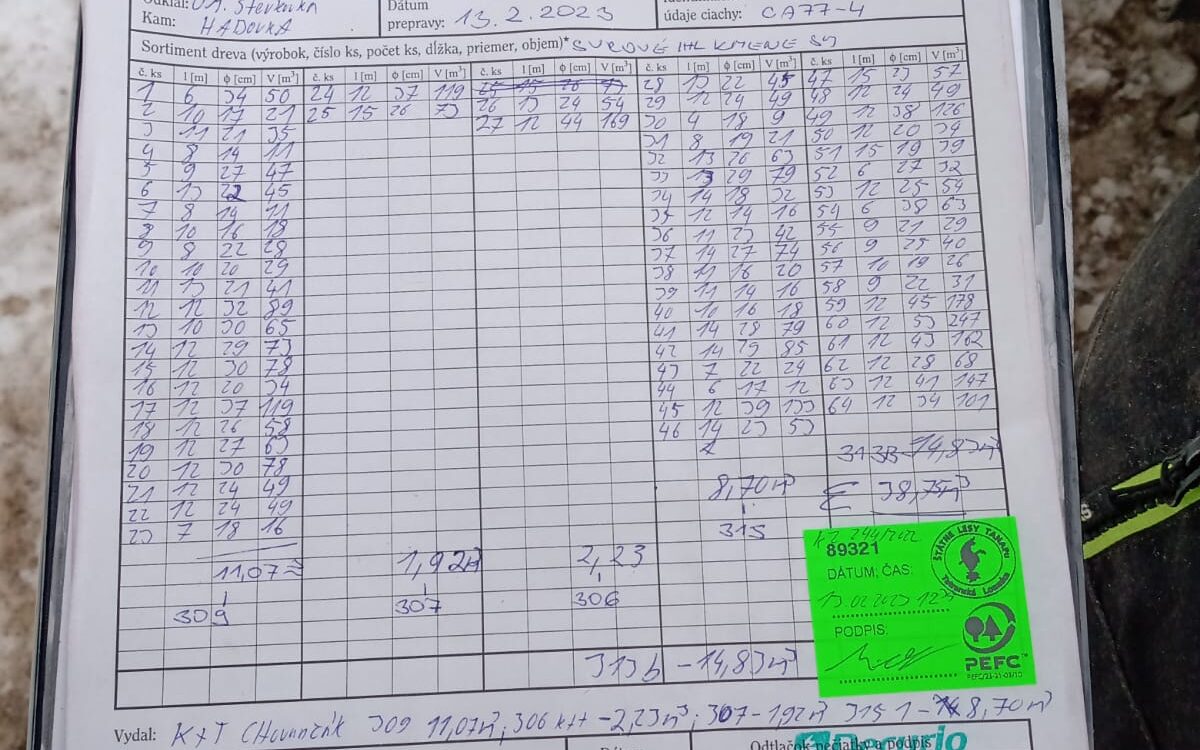 Odkiaľ: O.H. Števkovka
Kam: HADOVKA
Dátum
prepravy: 13.2.2023
údaje ciachy: CA77-4
Sortiment dreva (výrobok, číslo ks, počet ks, dĺžka, priemer, objem)* SUROVÉ IHL KMENE SJ
č. ks l [m] ϕ [cm] V [m³] č. ks l [m] ϕ [cm] V [m³] č. ks l [m] ϕ [cm] V [m³] č. ks l [m] ϕ [cm] V [m³] č. ks l [m] ϕ [cm] V [m³]
1 6 34 50 24 12 37 119 25 15 26 73 28 13 22 45 47 15 23 57
2 10 17 21 25 15 26 73 26 13 24 54 29 12 24 49 48 12 24 49
3 11 21 35 27 12 44 169 30 4 18 9 49 12 38 126
4 8 14 11 31 8 19 21 50 12 20 34
5 9 27 47 32 13 26 63 51 15 19 39
6 13 22 45 33 13 29 79 52 6 27 32
7 8 14 11 34 14 18 32 53 12 25 54
8 10 16 18 35 12 14 16 54 6 38 63
9 8 22 28 36 11 23 42 55 9 21 29
10 10 20 29 37 14 27 74 56 9 25 40
11 13 21 41 38 11 16 20 57 10 19 26
12 12 32 89 39 11 14 16 58 9 22 31
13 10 30 65 40 10 16 18 59 12 45 178
14 12 29 73 41 14 28 79 60 12 53 247
15 12 30 78 42 14 29 85 61 12 43 162
16 12 20 34 43 7 22 24 62 12 28 68
17 12 37 119 44 6 17 12 63 12 41 147
18 12 26 58 45 12 39 133 64 12 34 101
19 12 27 63 46 14 23 53
20 12 30 78
21 12 24 49
22 12 24 49
23 7 18 16
313B-14,83m³
8,70m³ Σ 38,75m³
315
11,07 1,92 2,23
309 307 306
313b -14,83m³
89321
DÁTUM, ČAS:
13.02.2023
PODPIS:
ŠTÁTNE LESY TANAPu
Tatranská Lomnica
PEFC™
Vydal: K+T CHovančák 309 11,07m³, 306 k+t -2,23m³, 307-1,92m³ 315 1-8,70m³
Odtlačok pečiatky a podpis